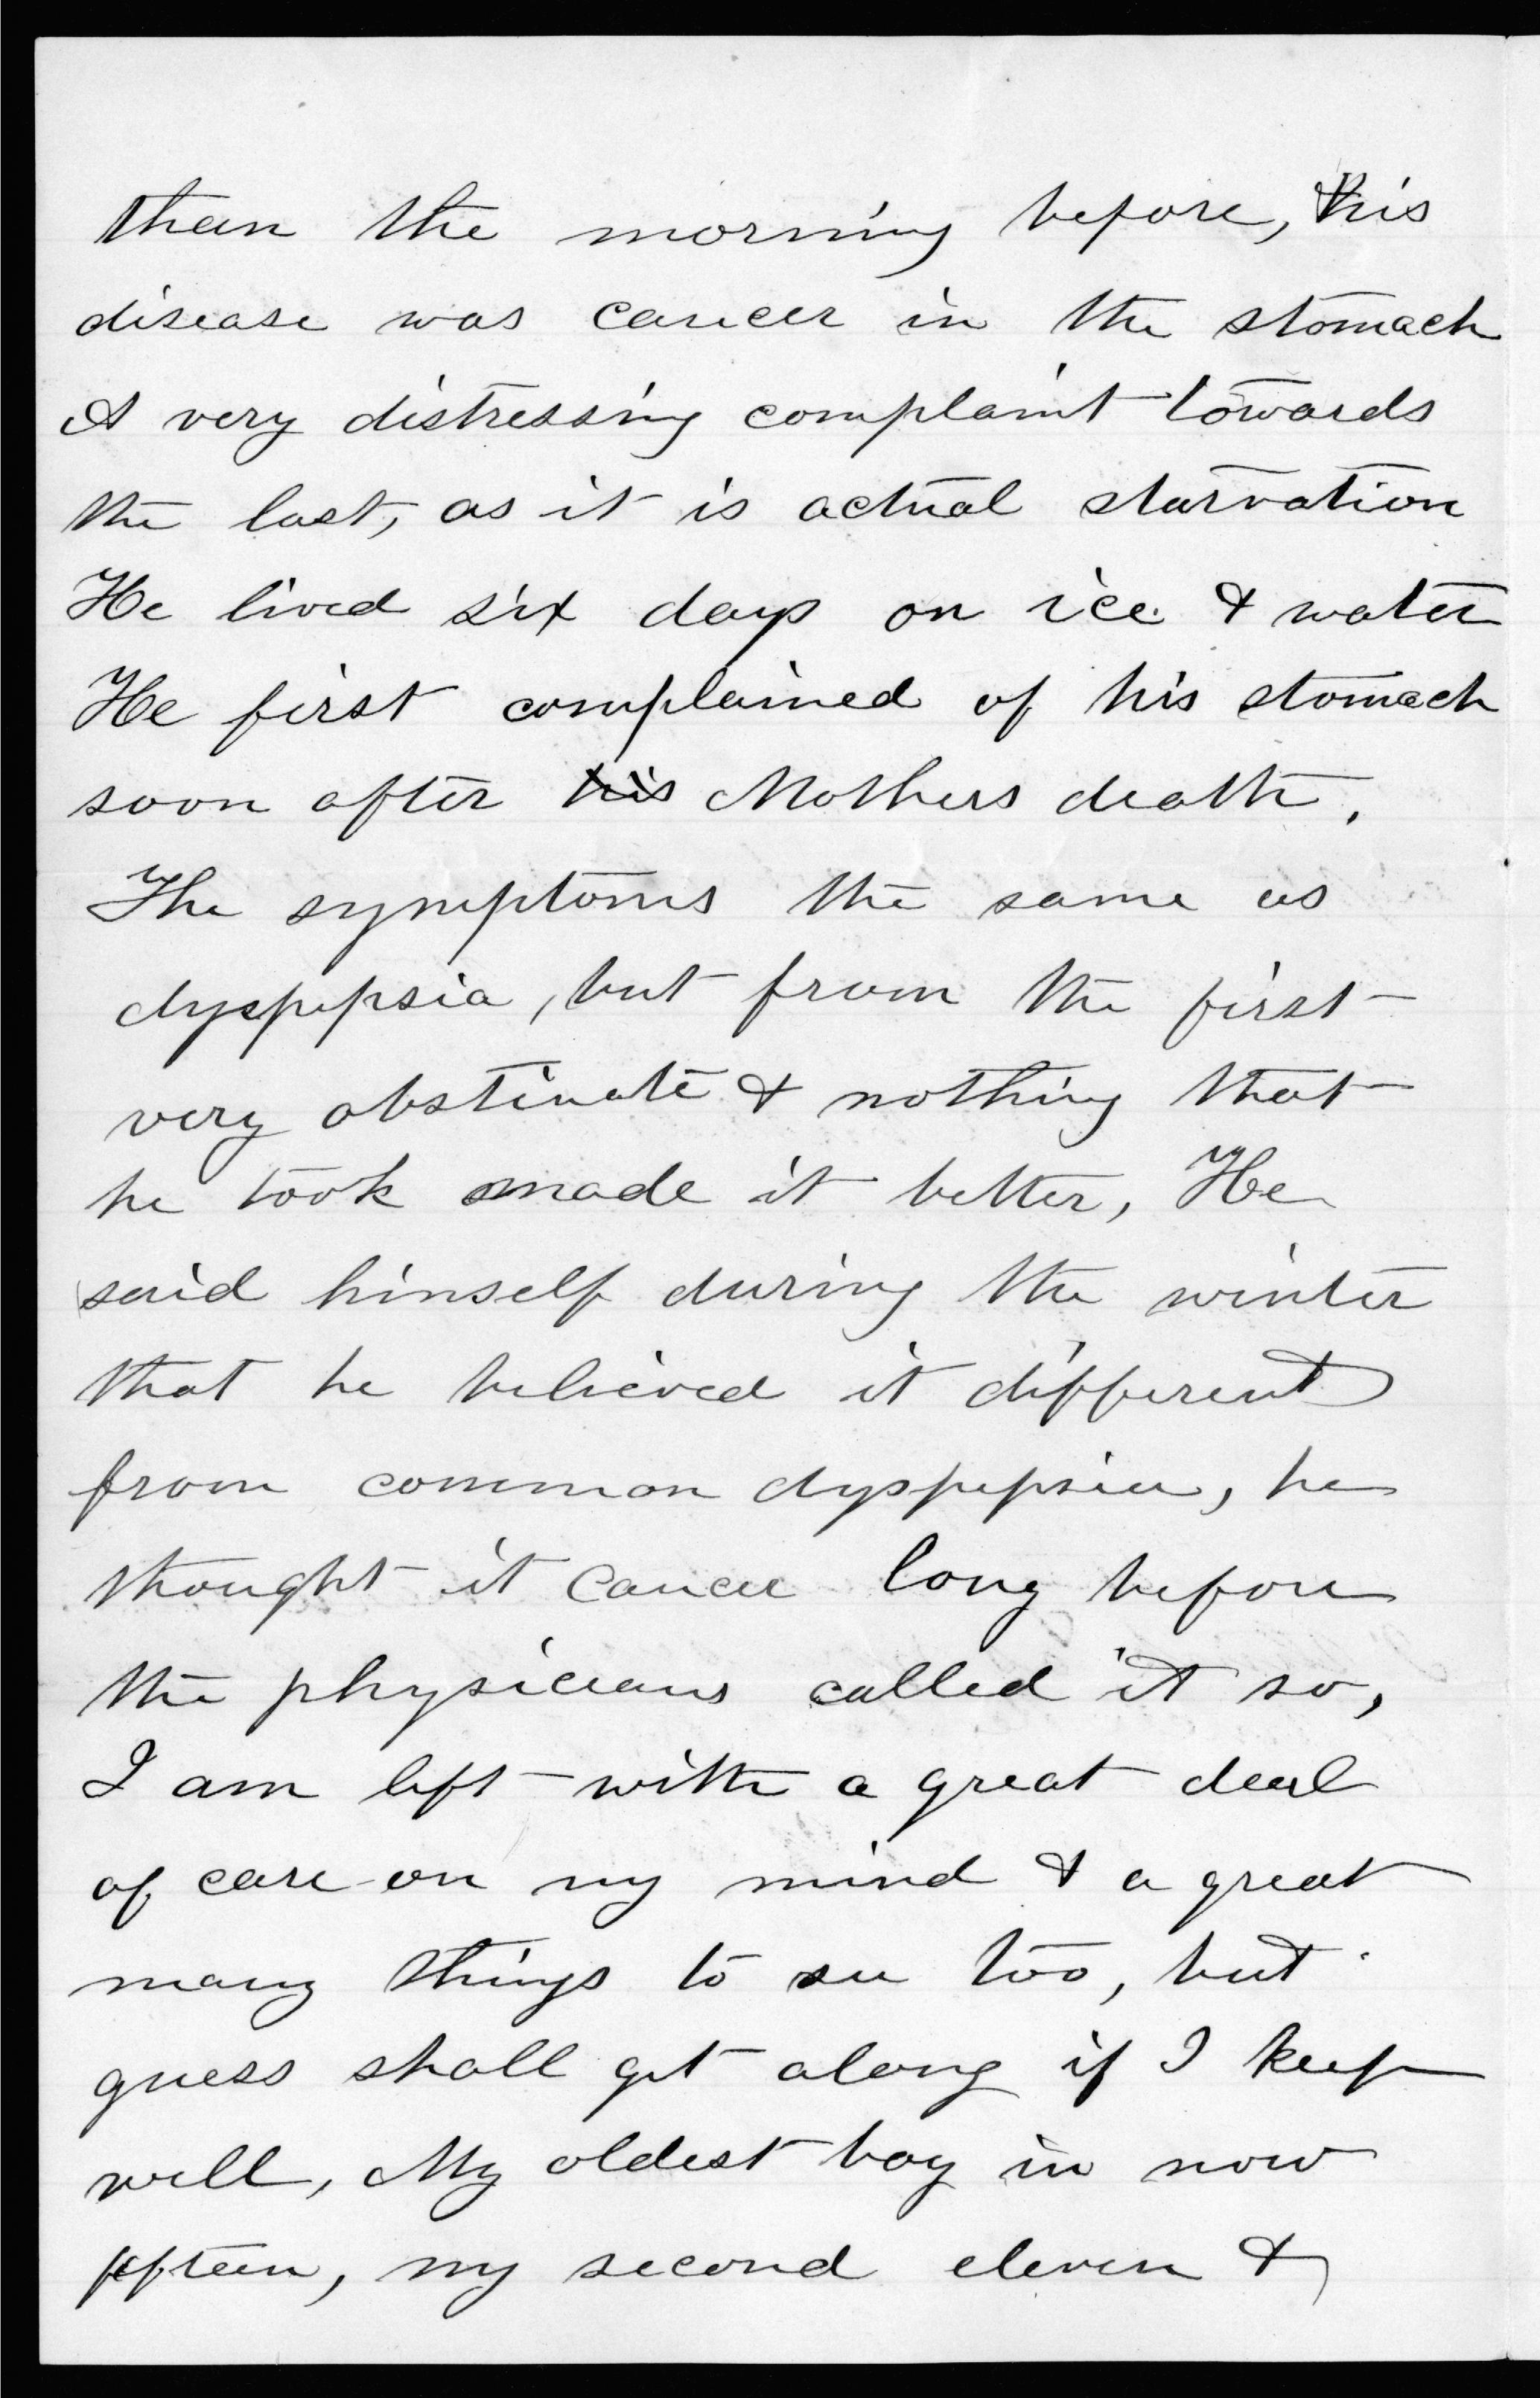 than the morning before, his
disease was cancer in the stomach
A very distressing complaint towards
the last, as it is actual starvation
He lived six days on ice & water
He first complained of his stomach
soon after his Mothers death.
The symptoms the same as
dyspepsia, but from the first
very obstinate & nothing that
he took made it better, He
said himself during the winter
that he believed it different
from common dyspepsia, he
thought it cancer long before
the physicians called it so,
I am left with a great deal
of care on my mind & a great
many things to see too, but
guess shall get along if I keep
well, My oldest boy is now
fifteen, my second eleven &